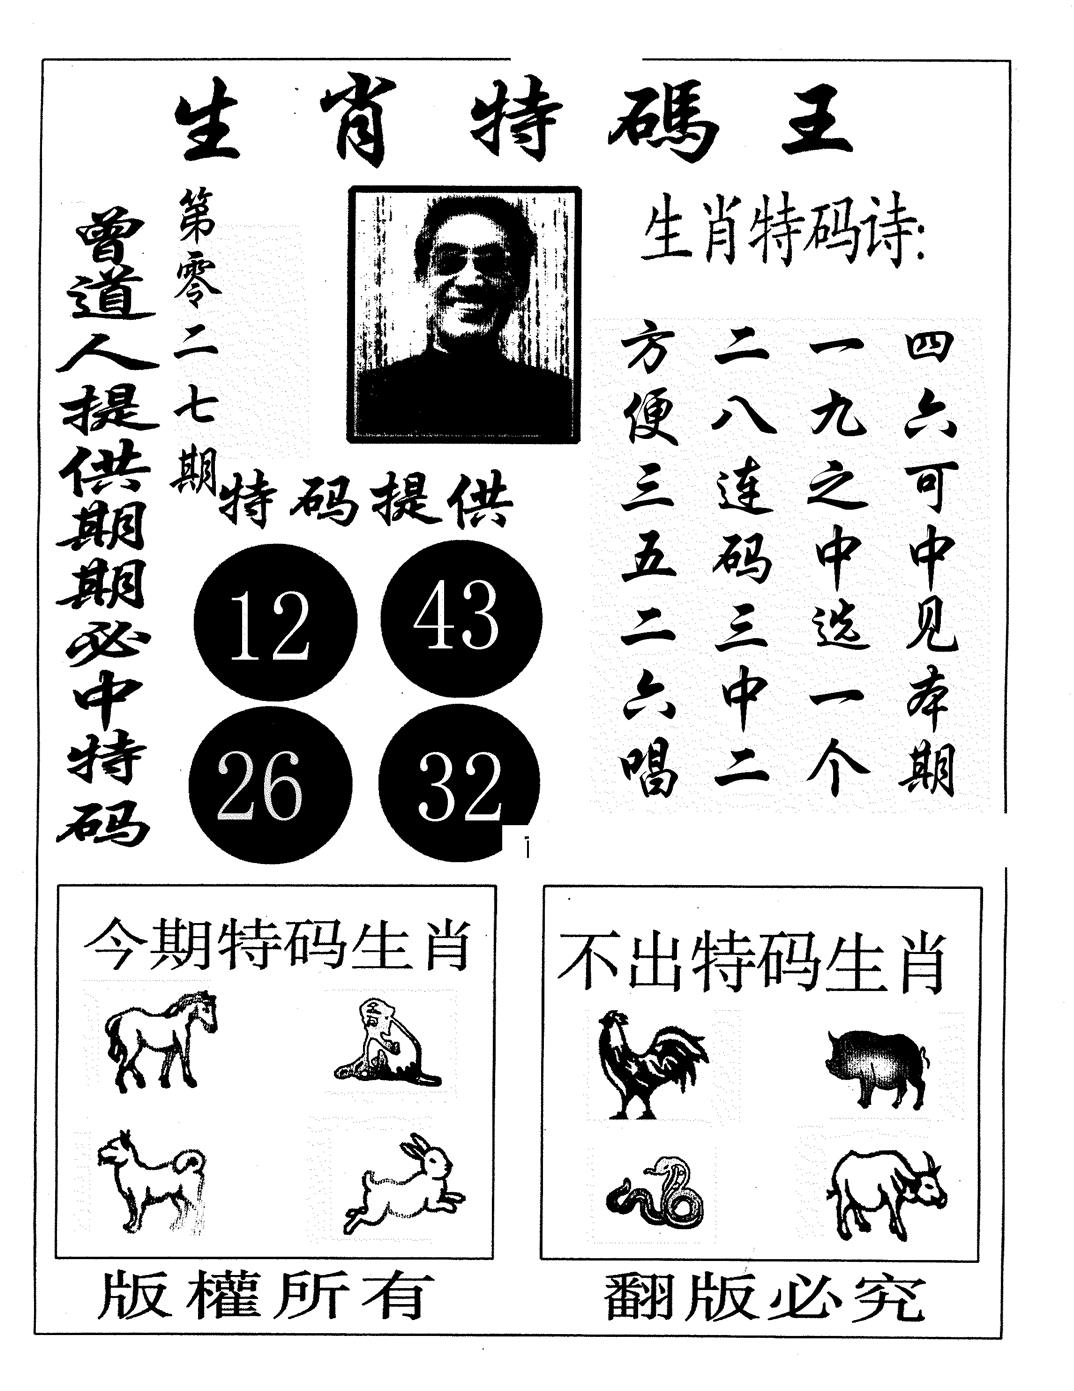 生肖特碼王
曾道人提供期期必中特码
第零二七期
生肖特码诗:
四六可中见本期
一九之中选一个
二八连码三中二
方便三五二六唱
特码提供
12
43
26
32
i
今期特码生肖
不出特码生肖
版權所有
翻版必究